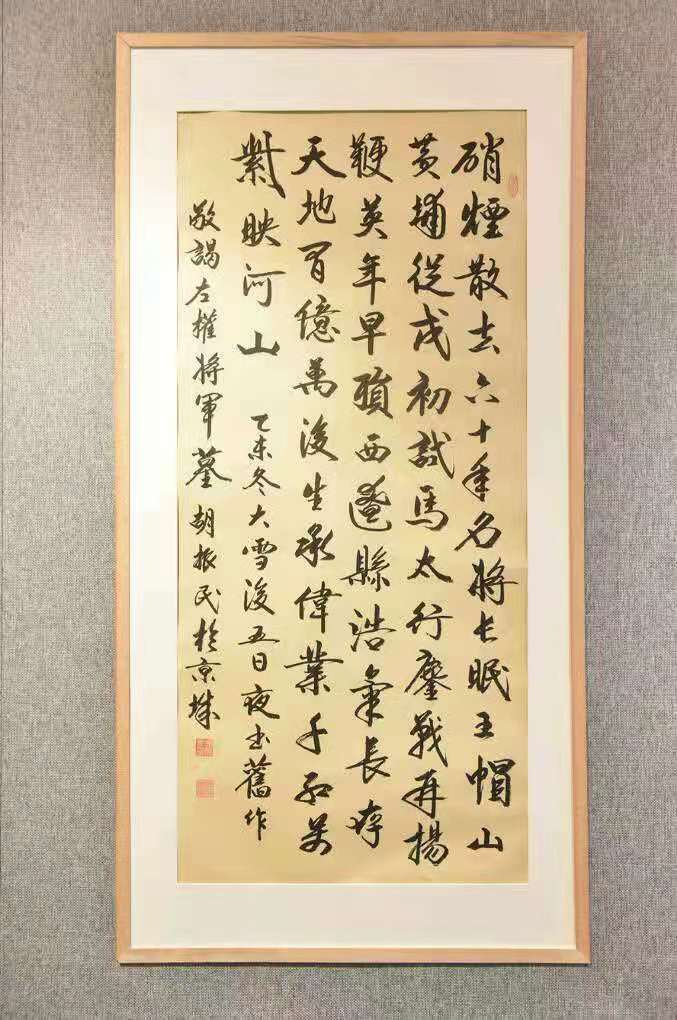 硝煙散去六十年名將長眠王帽山
黄埔從戎初試馬太行鏖戰再揚
鞭英年早殞西遼縣浩氣長存
天地間億萬後生承偉業千紅萬
紫映河山 乙未冬大雪後五日夜書舊作
敬謁左權將軍墓 胡振民於京城